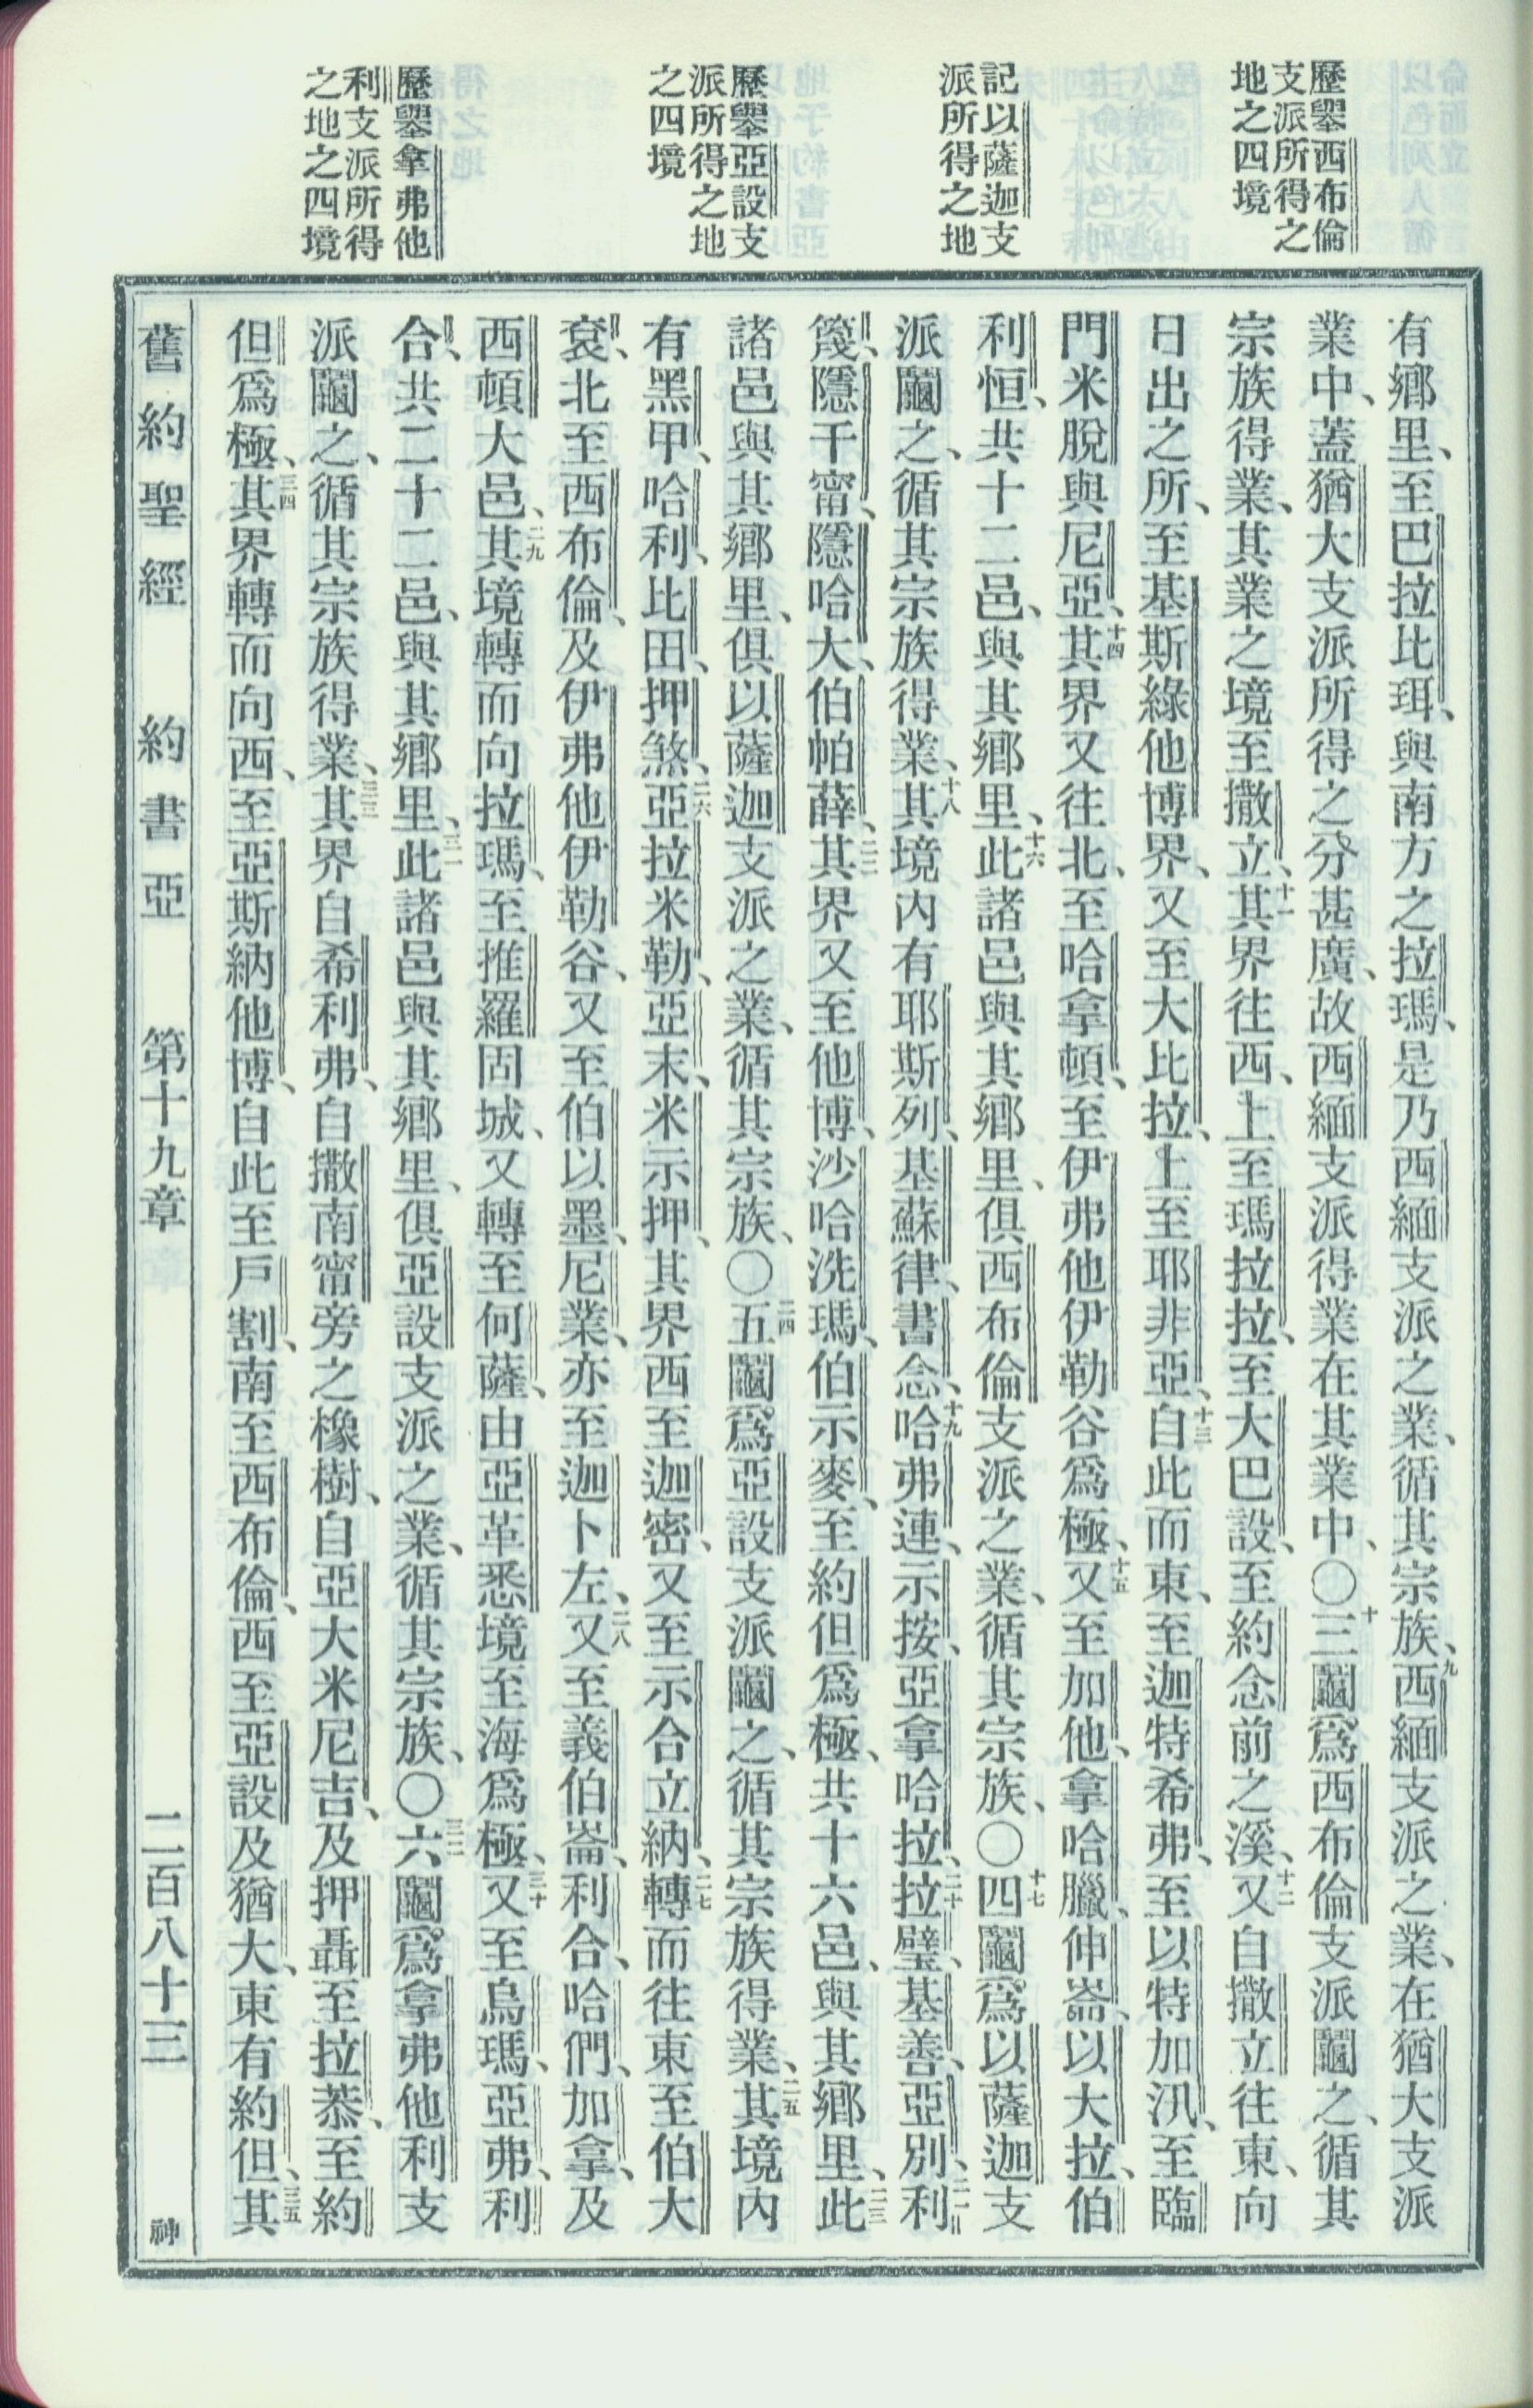 歷舉西布倫
支派所得之
地之四境
記以薩迦支
派所得之地
歷舉亞設支
派所得之地
之四境
歷舉拿弗他
利支派所得
之地之四境
有鄉里、至巴拉比珥、與南方之拉瑪、是乃西緬支派之業、循其宗族、九西緬支派之業、在猶大支派
業中、蓋猶大支派所得之分甚廣、故西緬支派得業在其業中、〇十三鬮爲西布倫支派鬮之、循其
宗族得業、其業之境至撒立、十一其界往西、上至瑪拉拉、至大巴設、至約念前之溪、十二又自撒立往東、向
日出之所、至基斯綠他博界、又至大比拉、上至耶非亞、十三自此而東、至迦特希弗、至以特加汛、至臨
門米脫與尼亞、十四其界又往北、至哈拿頓、至伊弗他伊勒谷爲極、十五又至加他、拿哈臘、伸崙、以大拉、伯
利恒、共十二邑、與其鄉里、十六此諸邑與其鄉里、俱西布倫支派之業、循其宗族、〇十七四鬮爲以薩迦支
派鬮之、循其宗族得業、十八其境內有耶斯列、基蘇律、書念、十九哈弗連、示按、亞拿哈拉、二十拉璧、基善、亞別、二一利
篾、隱千甯、隱哈大、伯帕薛、二二其界又至他博、沙哈洗瑪、伯示麥、至約但爲極、共十六邑、與其鄉里、二三此
諸邑與其鄉里、俱以薩迦支派之業、循其宗族、〇二四五鬮爲亞設支派鬮之、循其宗族得業、二五其境內
有黑甲、哈利、比田、押煞、二六亞拉米勒、亞末、米示押、其界西至迦密、又至示合立納、二七轉而往東至伯大
袞、北至西布倫、及伊弗他伊勒谷、又至伯以墨、尼業、亦至迦卜左、二八又至義伯崙、利合、哈們、加拿、及
西頓大邑、二九其境轉而向拉瑪、至推羅固城、又轉至何薩、由亞革悉境至海爲極、三十又至烏瑪、亞弗、利
合、共二十二邑、與其鄉里、三一此諸邑與其鄉里、俱亞設支派之業、循其宗族、〇三二六鬮爲拿弗他利支
派鬮之、循其宗族得業、三三其界自希利弗、自撒南甯旁之橡樹、自亞大米尼吉、及押聶至拉恭、至約
但爲極、三四其界轉而向西、至亞斯納他博、自此至戶割、南至西布倫、西至亞設及猶大、東有約但、三五其
舊約聖經　約書亞　第十九章　二百八十三　神